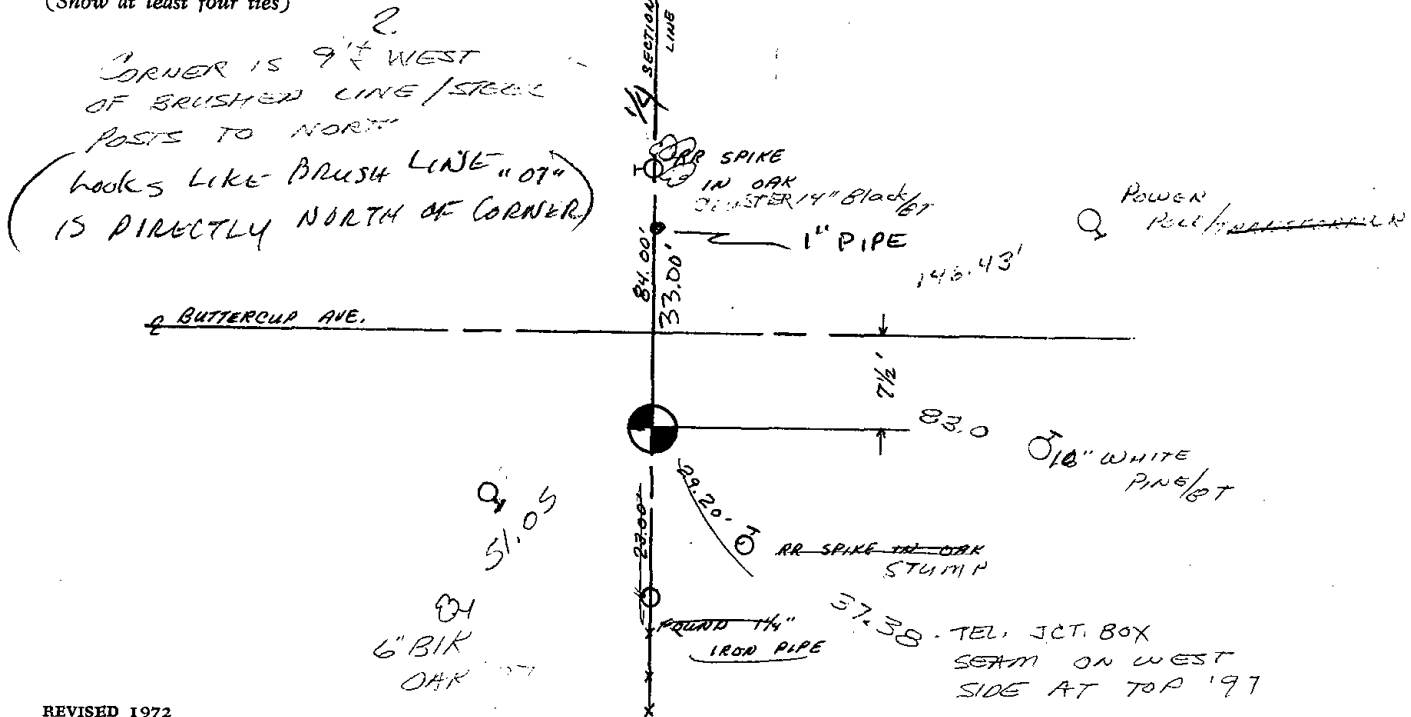 (Show at least four ties)
2.
CORNER IS 9'± WEST
OF BRUSHEN LINE/STEEL
POSTS TO NORTH
(LOOKS LIKE BRUSH LINE "07"
IS DIRECTLY NORTH OF CORNER)
1/4 SECTION
LINE
RR SPIKE
IN OAK
CLUSTER 14" Black/BT
1" PIPE
POWER
POLE/
146.43'
84.00'
33.00'
℄ BUTTERCUP AVE.
7½'
83.0
18" WHITE
PINE/BT
29.20'
51.05
23.00'
RR SPIKE IN OAK
STUMP
6" BLK
OAK '97
FOUND 1¼"
IRON PIPE
37.38 · TEL. JCT. BOX
SEAM ON WEST
SIDE AT TOP '97
REVISED 1972